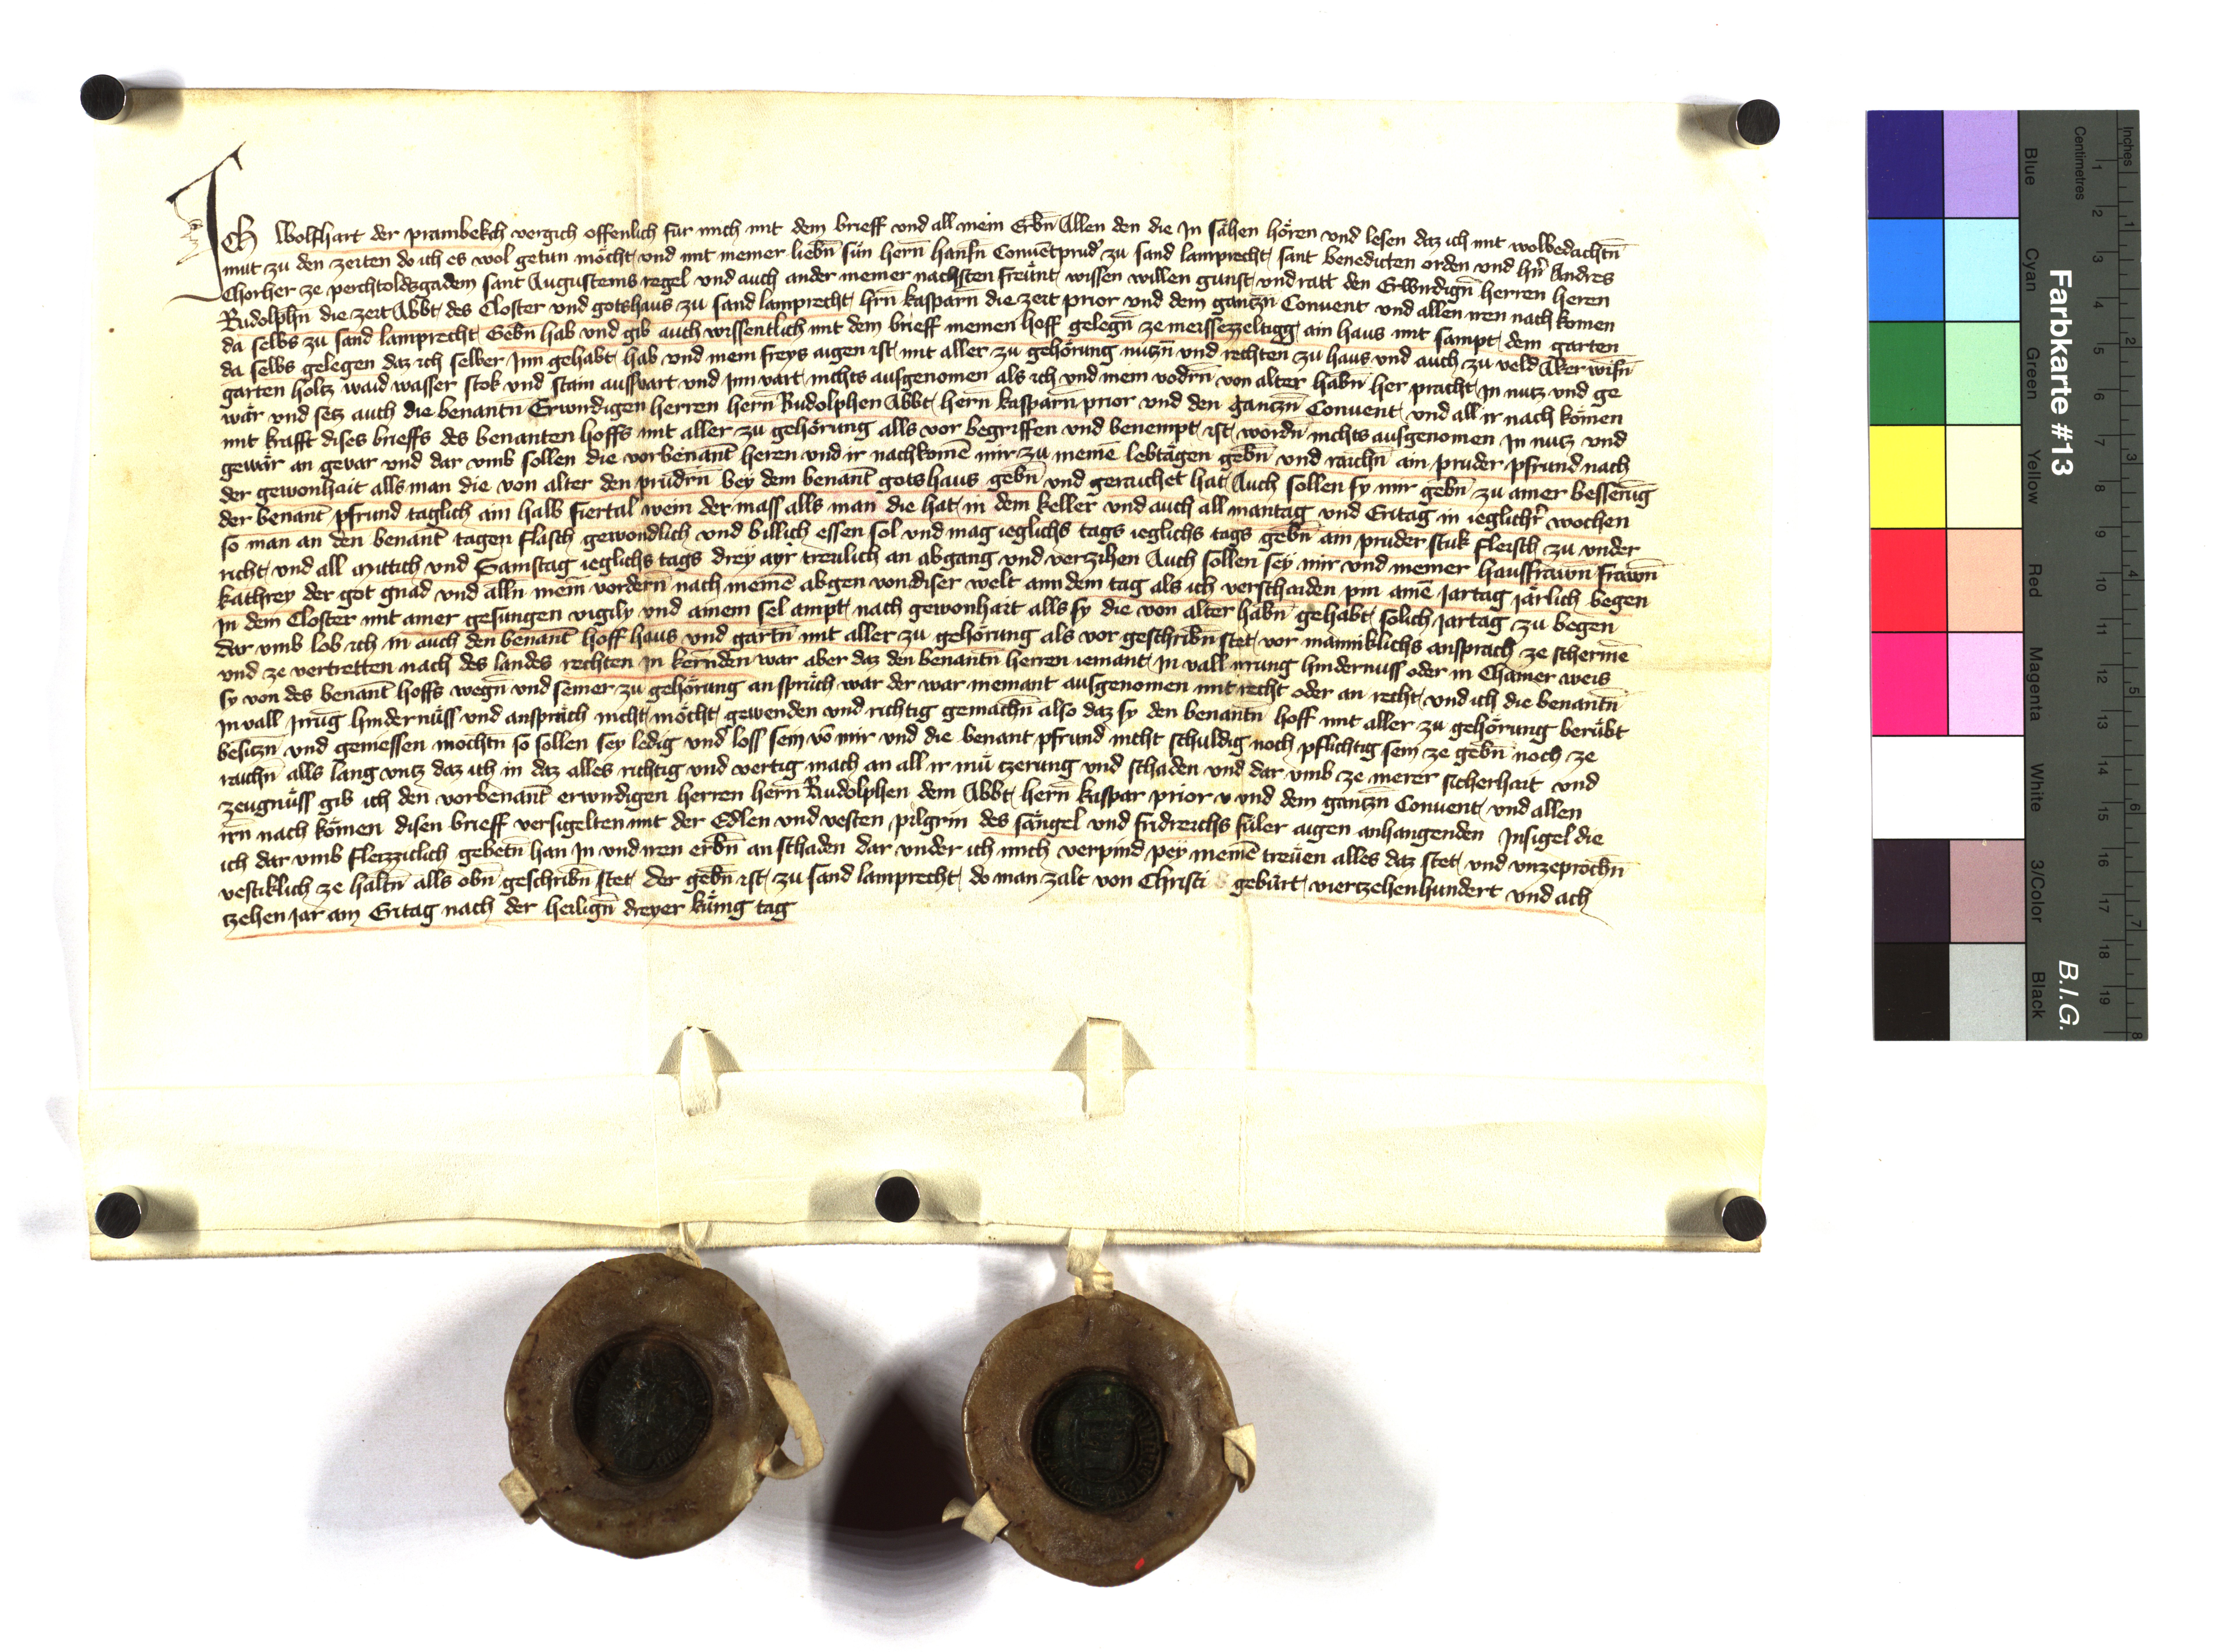 Ich Wolfhart der prambekch vergich offenlich für mich mit dem brieff vnd all mein Erbn̄ Allen den die In sähen hören vnd lesen daz ich mit wolbedachtn̄
mut zu den zeiten do ich es wol getun möcht vnd mit meiner liebn̄ sün hern̄ hansn̄ Conuētprud' zu sand lamprecht sant benedicten orden vnd hn̄r Andres
Chorher ze perchtoldsgadem sant Augusteins regel vnd auch ander meiner nachsten freünt wissen willen gunst vnd ratt den Erwirdign̄ herren heren
Rudolphn̄ die zeit Abbt des Closter vnd gotshaus zu sand lamprecht hrn̄ kasparn̄ die zeit prior vnd dem gantzn̄ Conuent vnd allen iren nach komen
da selbs zu sand lamprecht Gebn̄ hab vnd gib auch wissentlich mit dem brieff meinen hoff gelegn̄ ze ain haus mit sampt dem garten
da selbs gelegen daz ich selber Inn gehabt hab vnd mein freys aigen ist mit aller zu gehörung nutzn̄ vnd rechten zu haus vnd auch zu veld Aker wisn̄
garten holtz waid wasser stok vnd stain ausfart vnd Inn vart nichts ausgenomen als ich vnd mein vodrn̄ von alter habn̄ her pracht In nutz vnd ge
wär vnd setz auch die benantn̄ Erwirdigen herren hern̄ Rudolphen Abbt hern̄ kasparn̄ prior vnd den gantzn̄ Conuent vnd all ir nach kömen
mit krafft dises brieffs des benanten hoffs mit aller zu gehörung alls vor begriffen vnd benempt ist wordn̄ nichts ausgenomen In nutz vnd
gewär an gevar vnd dar vmb sollen die vorbenant̄ heren vnd ir nachkomē mir zu meinē lebtägen gebn̄ vnd raichn̄ ain pruder pfrund nach
der gewonhait alls man die von alter den prüdrn̄ bey dem benant̄ gotshaus gebn̄ vnd geraichet hat Auch sollen sy mir gebn̄ zu ainer besserūg
der benant̄ pfrund taglich ain halb fiertal wein der mass alls man die hat in dem keller vnd auch all mantag vnd Eritag in ieglichr̄ wochen
so man an den benant̄ tagen flaisch gewondlich vnd billich essen sol vnd mag ieglichs tags ieglichs tags gebn̄ ain pruder stuk fleisch zu vnder
richt vnd all mittich vnd Samstag ieglichs tags drey ayr treulich an abgang vnd verzihen Auch sollen sey mir vnd meiner haussfrawn̄ frawn̄
kathrey der got gnad vnd alln̄ mein̄ vordern̄ nach meinē abgen von diser welt ann dem tag als ich verschaiden pin ainē Jartag järlich begen
In dem Closter mit ainer gesungen vigily vnd ainem sel ampt nach gewonhait alls sy die von alter habn̄ gehabt solich Jartag zu begen
dar vmb lob ich in auch den benant̄ hoff haus vnd gartn̄ mit aller zu gehörung als vor geschribn̄ stet vor männiklichs ansprach ze schermē
vnd ze vertretten nach des landes rechten in kern̄den war aber daz den benantn̄ herren iemant In vall irrung hindernuss oder in Chainer weis
sy von des benant̄ hoffs wegn̄ vnd seiner zu gehörung an sprüch war der war niemant ausgenomen mit recht oder an recht vnd ich die benantn̄
In vall Irrūg hindernüss vnd anspräch nicht möcht gewenden vnd richtig gemachn̄ also daz sy den benantn̄ hoff mit aller zu gehörung berübt
besitzn̄ vnd geniessen möchtn̄ so sollen sey ledig vnd loss sein vō mir vnd die benant pfrund nicht schuldig noch pflichtig sein ze gebn̄ noch ze
raichn̄ alls lang vntz daz ich in daz alles richtig vnd vertig mach an all ir mü vnd schaden vnd dar vmb ze merer sicherhait vnd
zeugnüss gib ich den vorbenant̄ erwirdigen herren hern̄ Rudolphen dem Abbt hern̄ kaspar prior v vnd dem gantzn̄ Conuent vnd allen
irn̄ nach kömen disen brieff versigelten mit der Edlen vnd vesten pilgrin des sängel vnd fridreichs füler aigen anhangenden Insigel die
ich dar vmb fleizziclich gebetn̄ han In vnd iren erbn̄ an schaden dar vnder ich mich verpind pey meinē treüen alles daz stet vnd vnzeprochn̄
vestiklich ze haltn̄ alls obn̄ geschribn̄ stet der gebn̄ ist zu sand lamprecht do man zalt von Christi gebürt vierzehenhundert vnd ach
tzehen Jar am Eritag nach der heilign̄ dreyer künig tag
Farbkarte #13
B.I.G.
Inches 1 2 3 4 5 6 7 8
Centimetres 1 2 3 4 5 6 7 8 9 10 11 12 13 14 15 16 17 18 19
Blue Cyan Green Yellow Red Magenta White 3/Color Black